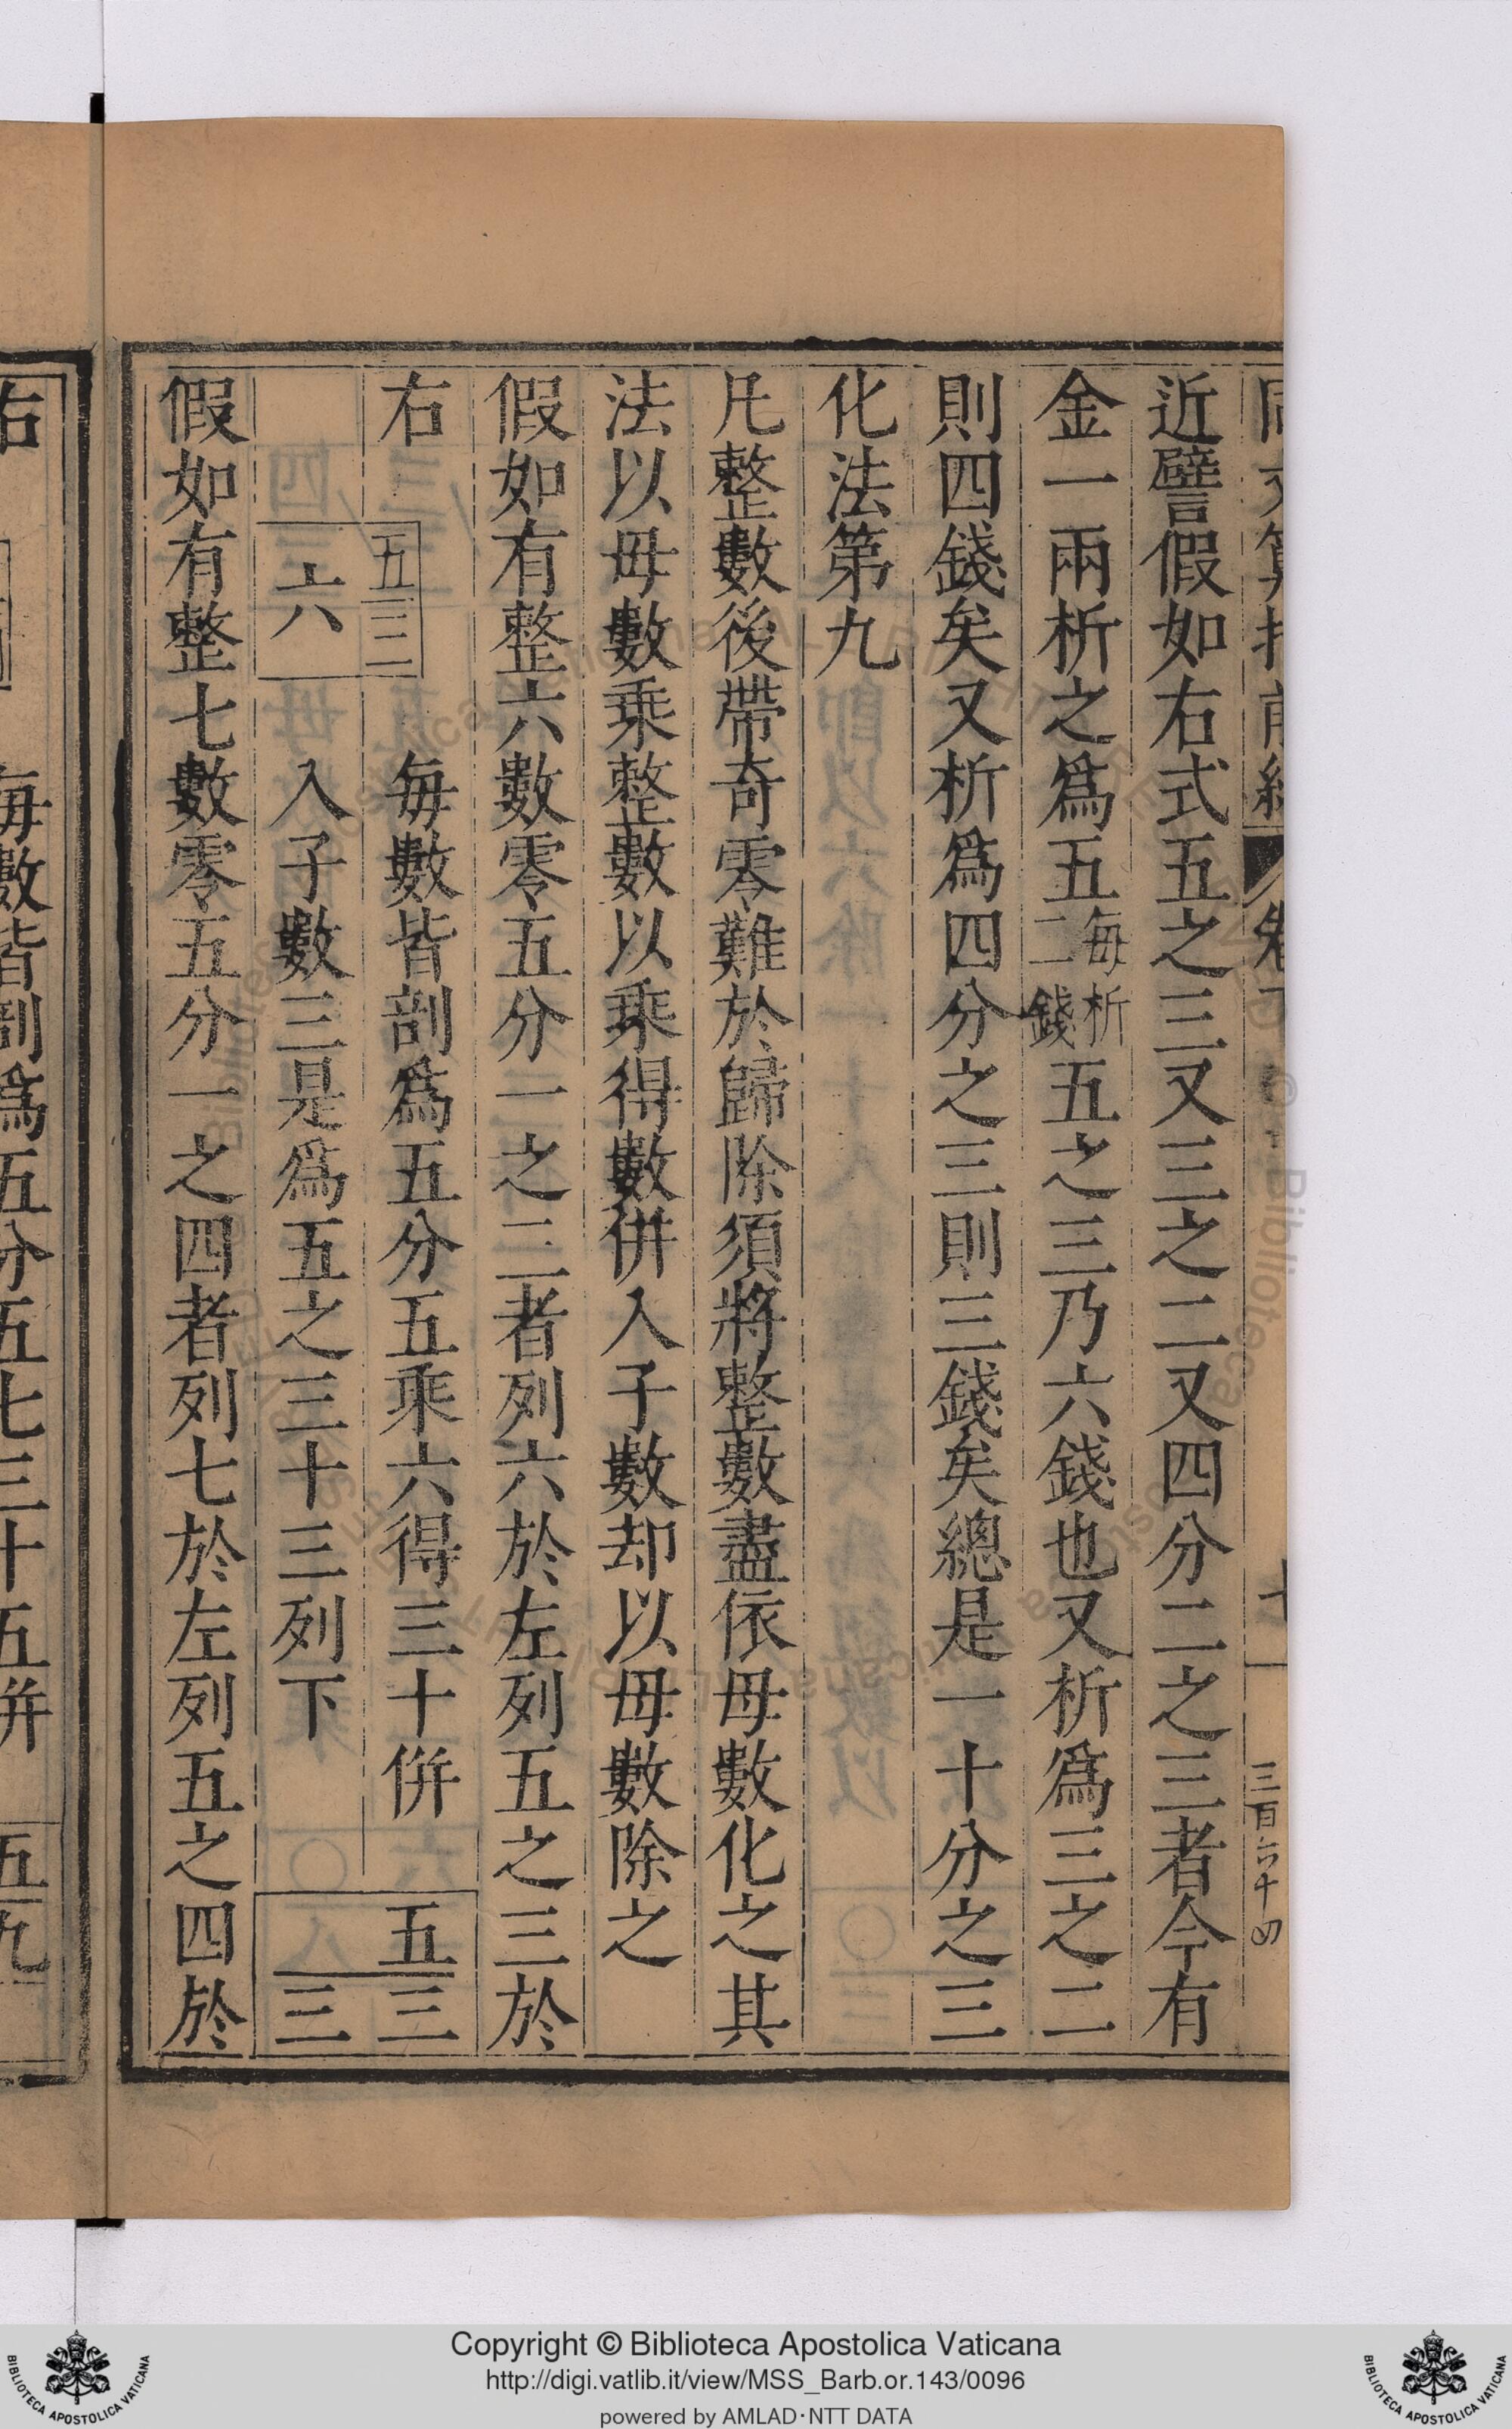 近譬假如右式五之三又三之二又四分二之三者今有
金一兩析之爲五每析二錢五之三乃六錢也又析爲三之二
則四錢矣又析爲四分之三則三錢矣總是一十分之三
化法第九
凡整數後帶奇零難於歸除須將整數盡依母數化之其
法以母數乘整數以乘得數併入子數却以母數除之
假如有整六數零五分一之三者列六於左列五之三於
右 五三 每數皆剖爲五分五乘六得三十併 五三
六 入子數三是爲五之三十三列下 三
假如有整七數零五分一之四者列七於左列五之四於
三百六十四
右 每數皆剖爲五分五七三十五併 五九
Copyright © Biblioteca Apostolica Vaticana
http://digi.vatlib.it/view/MSS_Barb.or.143/0096
powered by AMLAD·NTT DATA
BIBLIOTECA APOSTOLICA VATICANA
BIBLIOTECA APOSTOLICA VATICANA